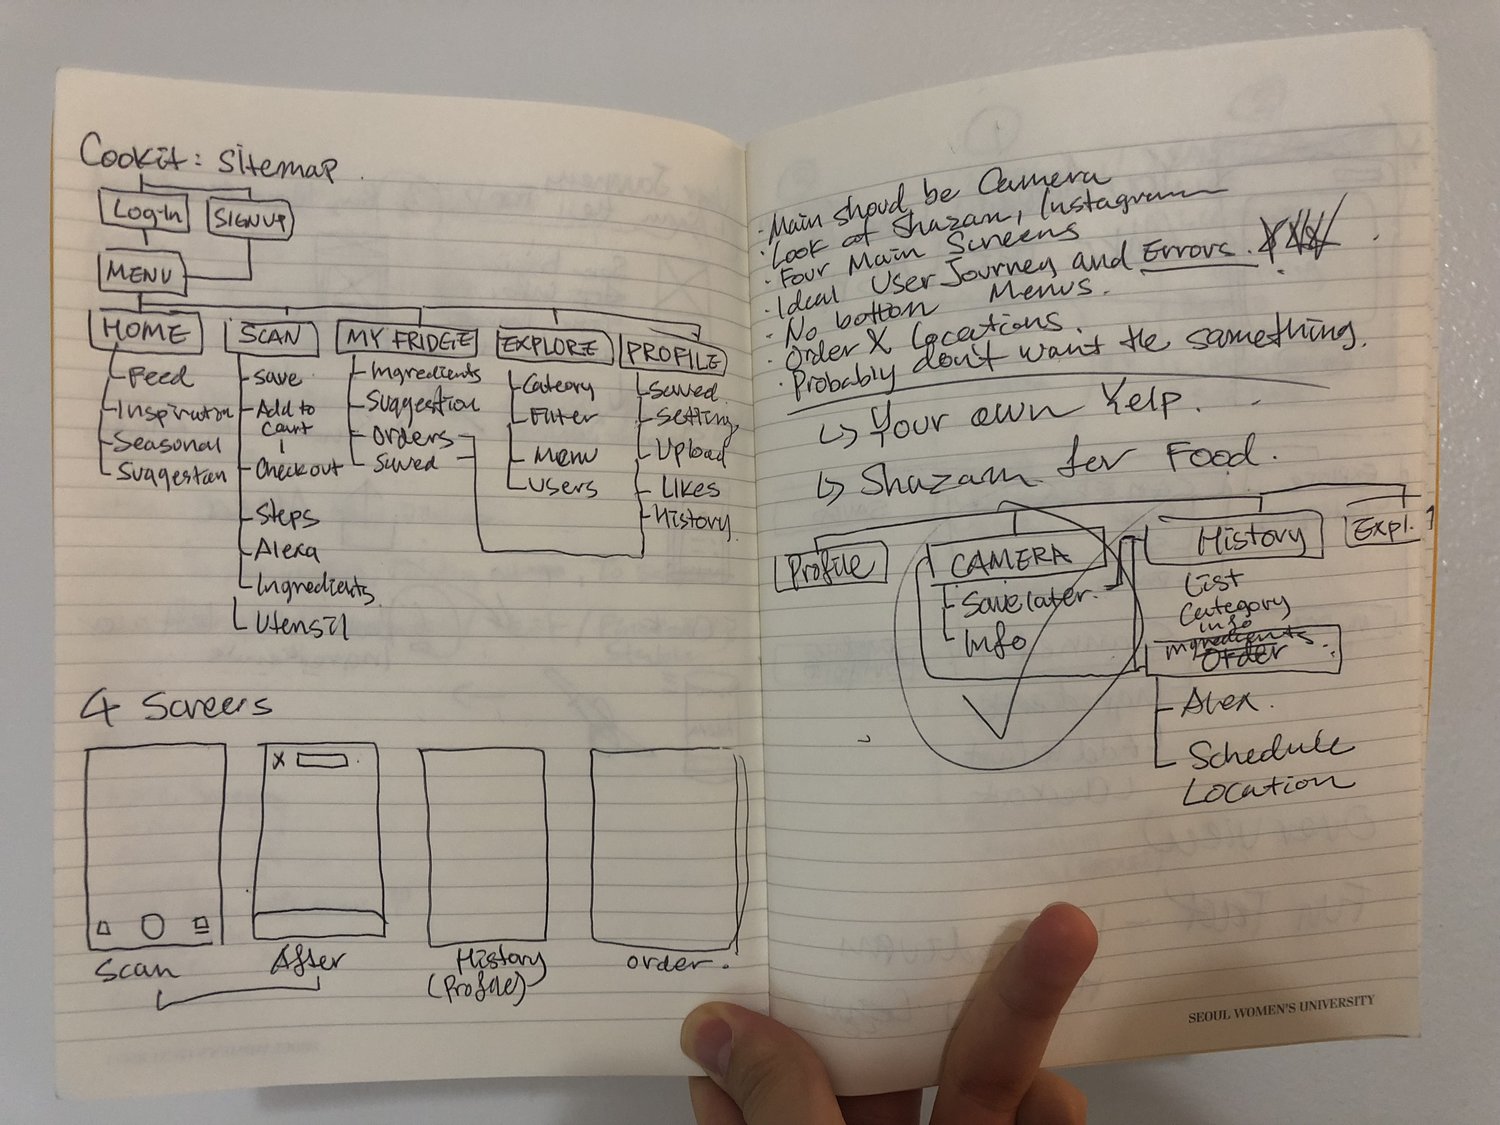 Cookit: Sitemap.
Log-In
SIGNUP
MENU
HOME
Feed
Inspiration
Seasonal
Suggestion
SCAN
Save
Add to
cart
Checkout
Steps
Alexa
Ingredients
Utensil
MY FRIDGE
Ingredients
Suggestion
Orders
Saved
EXPLORE
Cateory
Filter
Menu
Users
PROFILE
Saved
Setting
Upload
Likes
History
4 Screers
X
Scan
After
History
(Profile)
order.
· Main shoud be Camera
· Look at Shazam, Instagram
· Four Main Screens
· Ideal User Journey and Errors.
· No bottom Menus.
· Order X Locations.
· Probably don't want the something.
↳ Your own Yelp.
↳ Shazam for Food.
Profile
CAMERA
Save later.
Info
History
List
Category
info
Ingredients
Order
Alex.
Schedule
Location
Expl.
SEOUL WOMEN'S UNIVERSITY